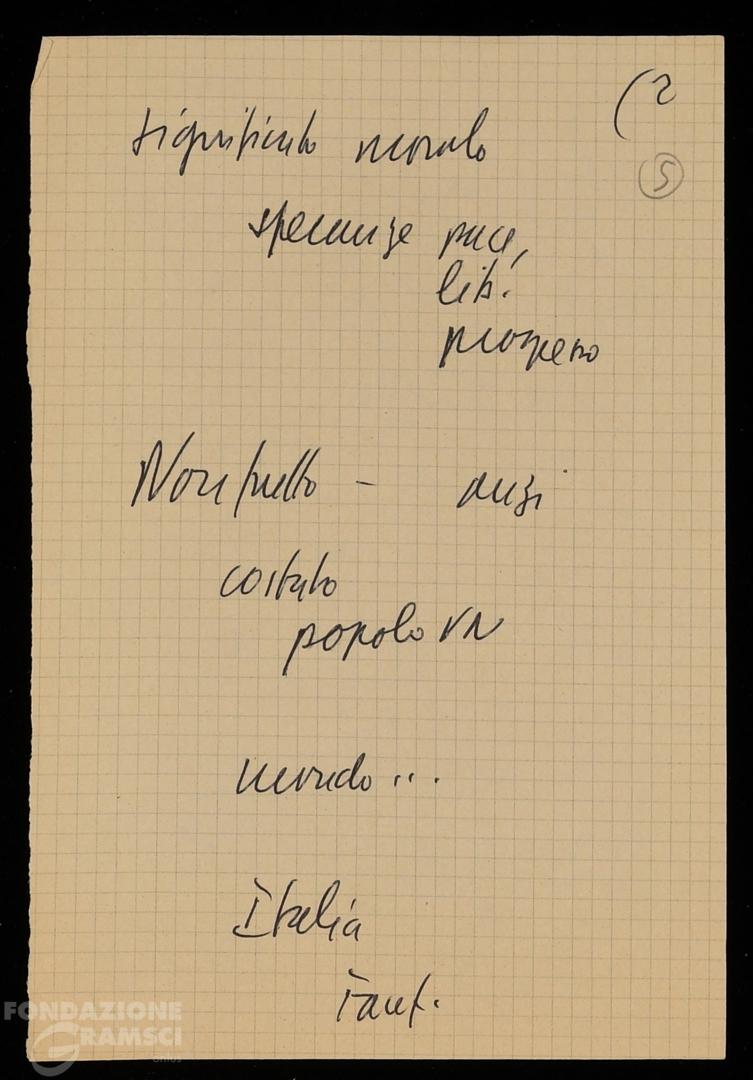 (2
5
significato morale
speranze pace,
lib.
progresso
Non frutto - anzi
costato
popolo VN
mondo...
Italia
Fanf.
FONDAZIONE
GRAMSCI
onlus